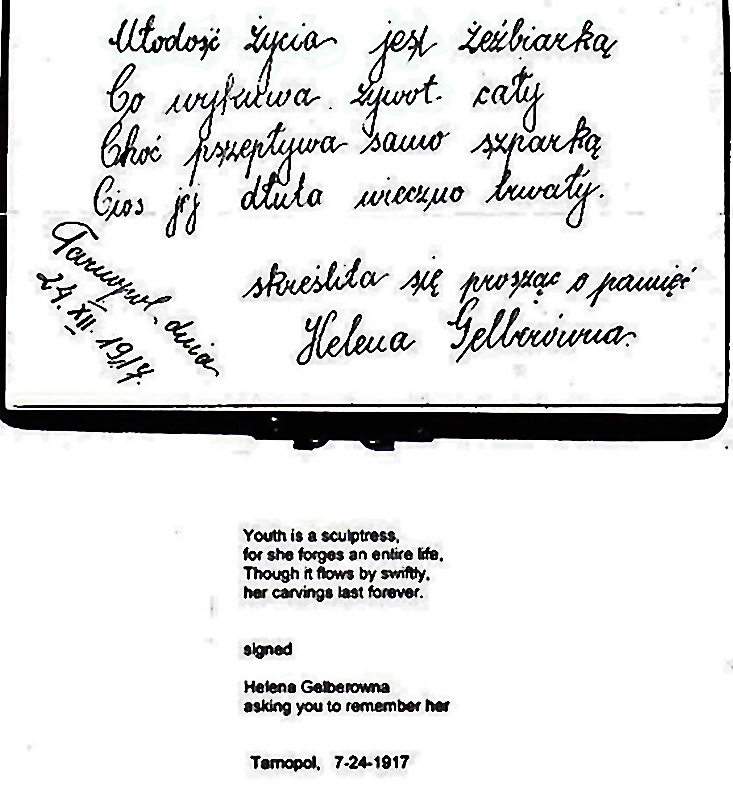 Młodość życia jest żeźbiarką
Co wykuwa żywot cały
Choć pszepływa samo szparką
Cios jej dłuta wieczno trwały.
Tarnopol, dnia
24. XII. 1917.
skreśliła się prosząc o pamięć
Helena Gelberówna.
Youth is a sculptress,
for she forges an entire life,
Though it flows by swiftly,
her carvings last forever.
signed
Helena Gelberowna
asking you to remember her
Tarnopol, 7-24-1917